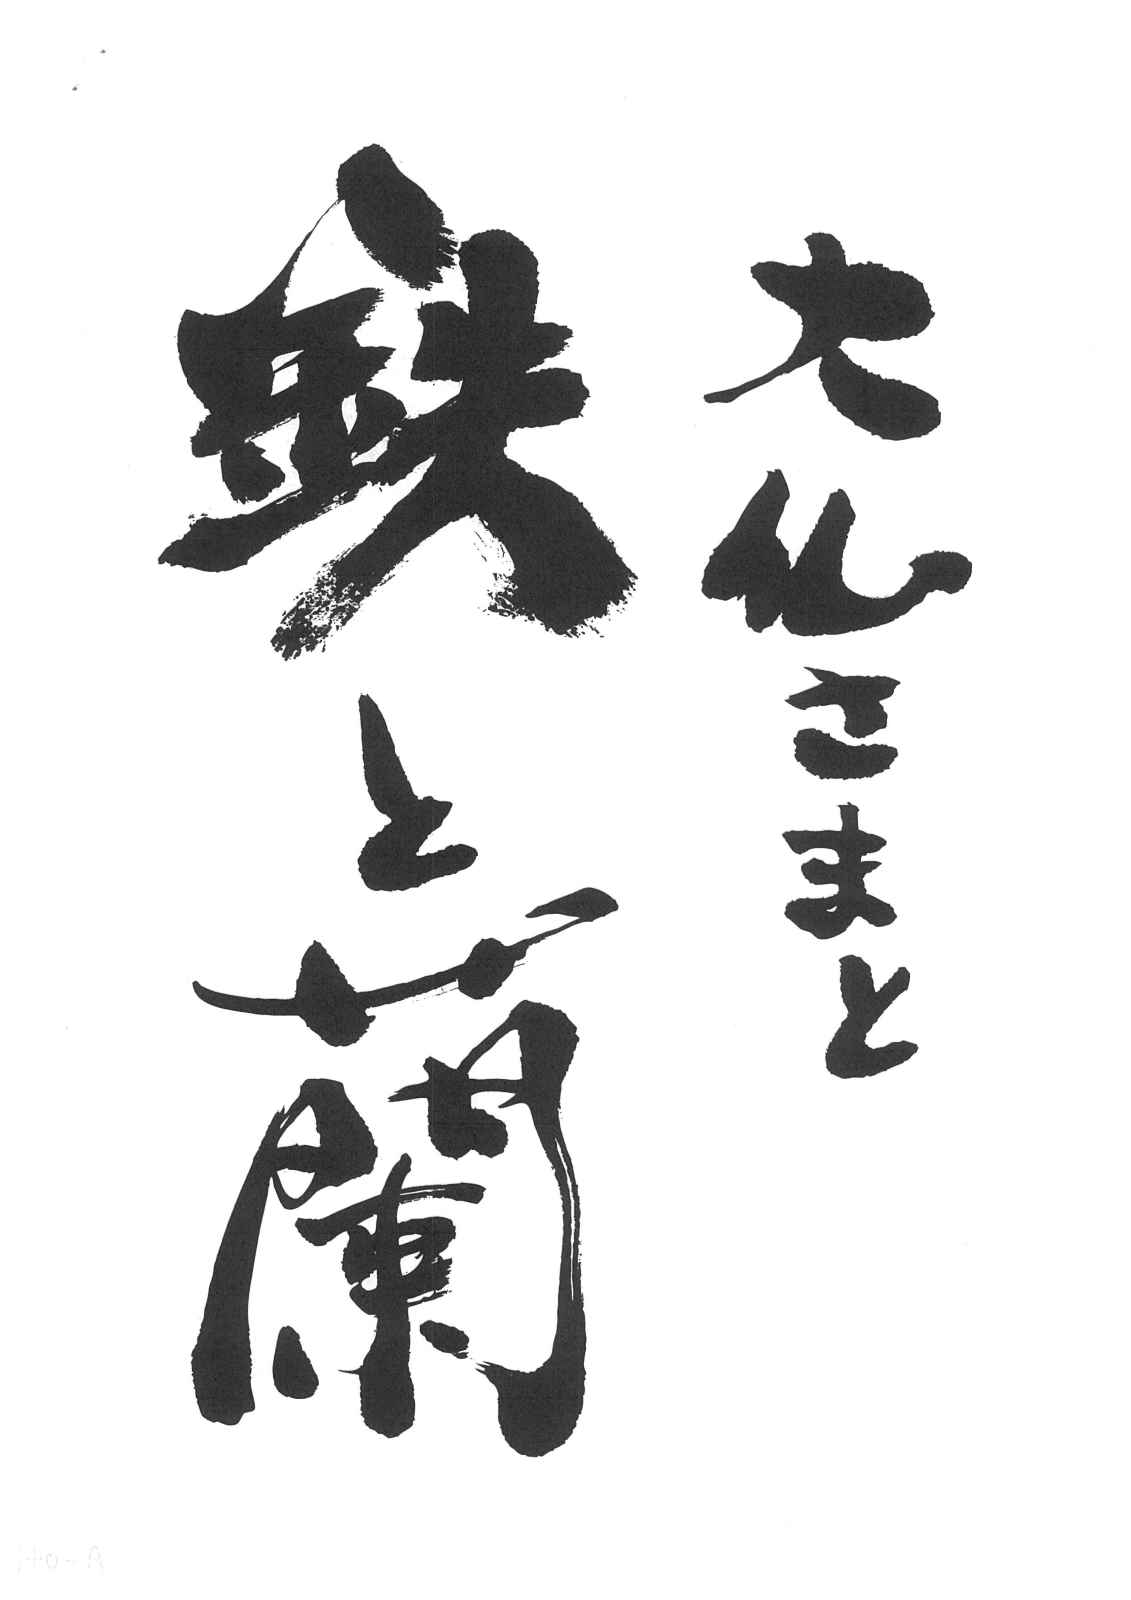 大仏さまと
鉄と蘭